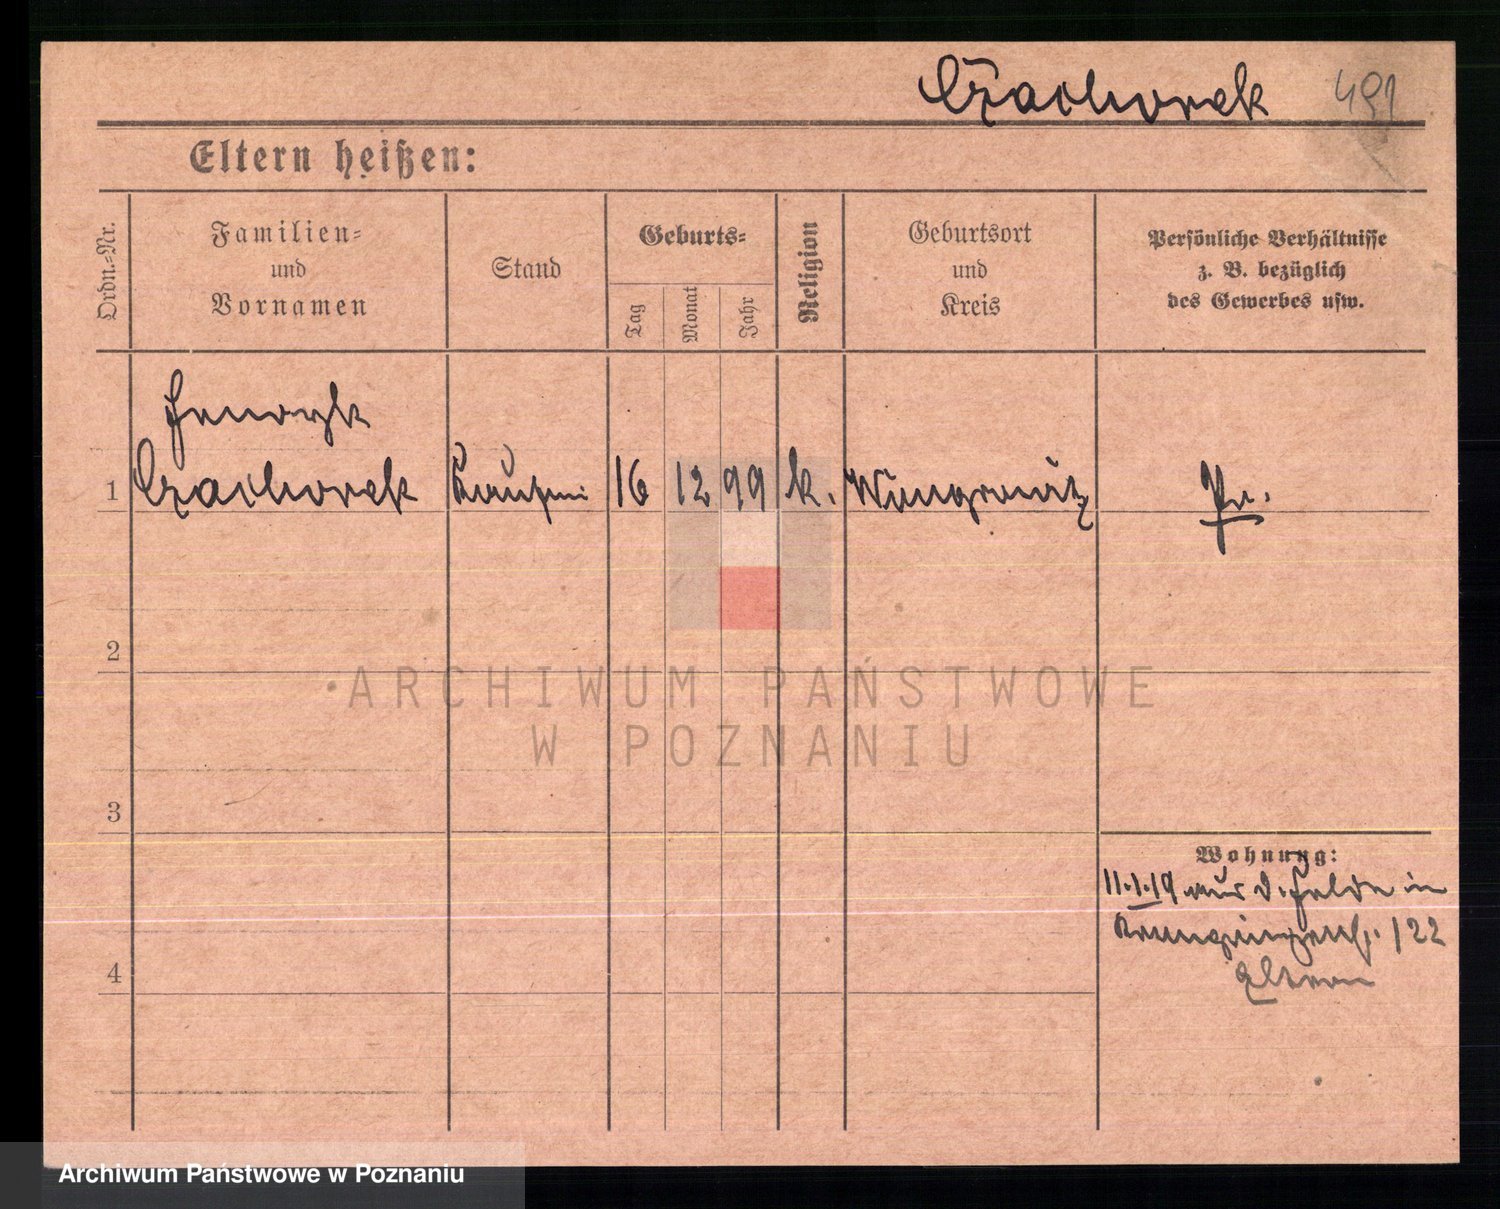 Czachorek 491
Eltern heißen:
Ordn.=Nr.
Familien=
und
Vornamen
Stand
Geburts=
Tag
Monat
Jahr
Religion
Geburtsort
und
Kreis
Persönliche Verhältnisse
z. B. bezüglich
des Gewerbes usw.
1 Czachorek Kaufm 16 12 99 k. Wongrowitz Pr.
2
3
4
Wohnung:
11.1.19 aus d. Felde in
122
Eltern
ARCHIWUM PAŃSTWOWE
W POZNANIU
Archiwum Państwowe w Poznaniu